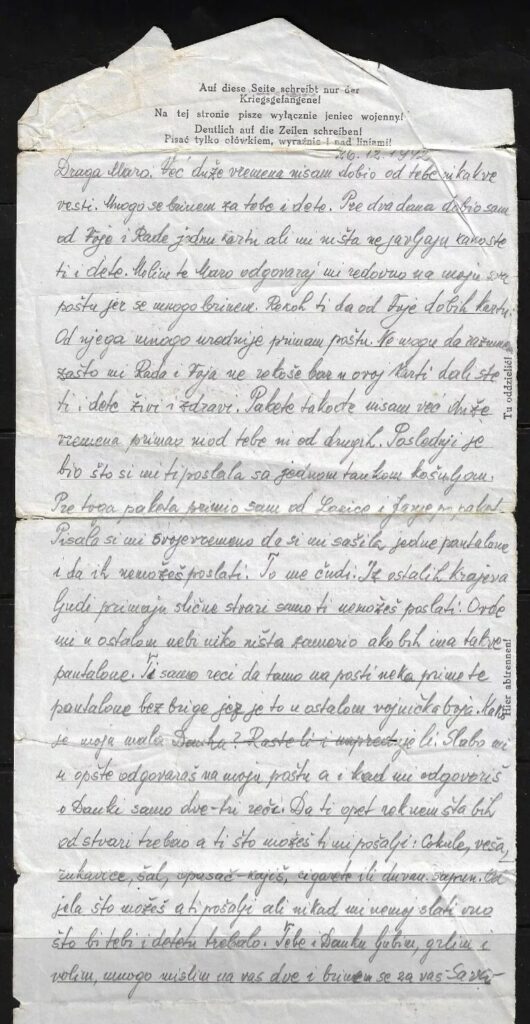 Auf diese Seite schreibt nur der
Kriegsgefangene!
Na tej stronie pisze wyłącznie jeniec wojenny!
Deutlich auf die Zeilen schreiben!
Pisać tylko ołówkiem, wyraźnie i nad liniami!
26.12.194
Draga Maro. Već duže vremena nisam dobio od tebe nikakve
vesti. Mnogo se brinem za tebe i dete. Pre dva dana dobio sam
od Foje i Rade jednu kartu ali mi ništa ne javljaju kako ste
ti i dete. Molim te Maro odgovaraj mi redovno na moju svu
poštu jer se mnogo brinem. Rekoh ti da od Foje dobih kartu.
Od njega mnogo urednije primam poštu. Ne mogu da razumem
zašto mi Rada i Foja ne rekoše bar u ovoj karti dali ste
ti i dete živi i zdravi. Pakete takođe nisam već duže
vremena primao ni od tebe ni od drugih. Poslednji je
bio što si mi ti poslala sa jednom tankom košuljom.
Pre toga paketa primio sam od i po paket.
Pisala si mi svojevremeno da si mi sašila jedne pantalone
i da ih nemožeš poslati. To me čudi. Iz ostalih krajeva
ljudi primaju slične stvari samo ti nemožeš poslati. Ovde
mi u ostalom nebi niko ništa zamerio ako bih ima takve
pantalone. Ti samo reci da tamo na pošti neka prime te
pantalone bez brige jer je to u ostalom vojnička boja. Kako
je moja mala Danka? Raste li i napreduje li. Slabo mi
u opšte odgovaraš na moju poštu a i kad mi odgovoriš
o Danki samo dve-tri reči. Da ti opet reknem šta bih
od stvari trebao a ti što možeš ti mi pošalji: Cokule, veša,
rukavice, šal, opasač-kajiš, cigarete ili duvan. sapun. Od
jela što možeš a ti pošalji ali nikad mi nemoj slati ono
što bi tebi i detetu trebalo. Tebe i Danku ljubim, grlim i
volim, mnogo mislim na vas dve i brinem se za vas-
Tu oddzielić!
Hier abtrennen!